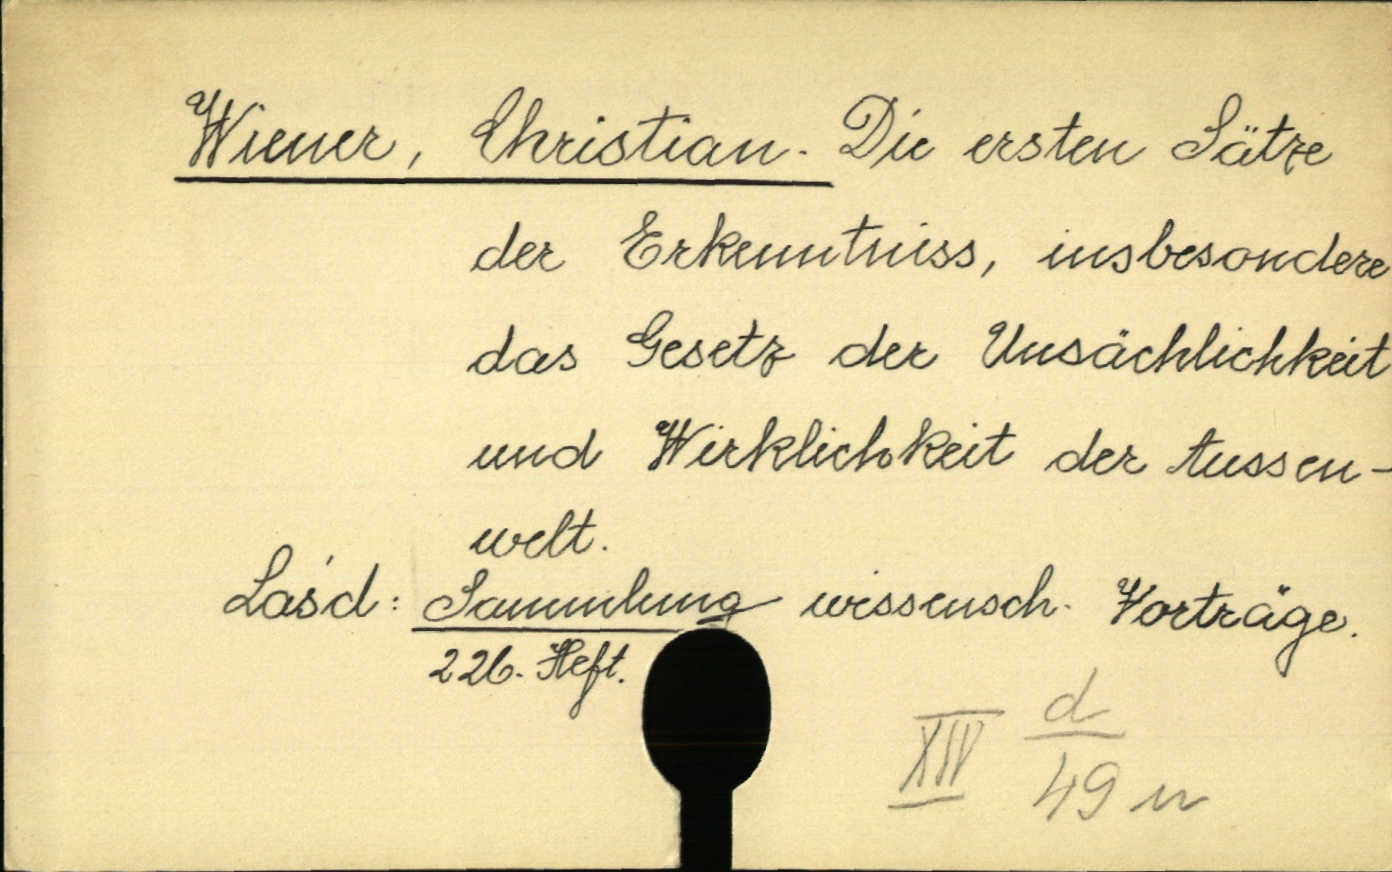 Wiener, Christian. Die ersten Sätze
der Erkenntniss, insbesondere
das Gesetz der Unsächlichkeit
und Wirklichkeit der Aussen-
welt.
Lásd: Sammlung wissensch. Vorträge.
226. Heft.
XIV d
49 u